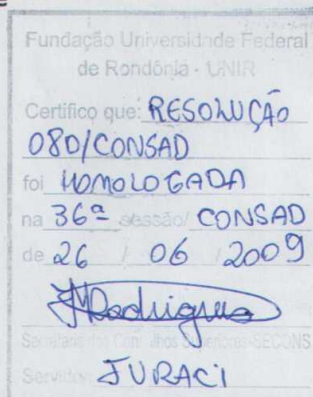 Fundação Universidade Federal
de Rondônia - UNIR
Certifico que: RESOLUÇÃO
080/CONSAD
foi HOMOLOGADA
na 36ª sessão/ CONSAD
de 26 / 06 / 2009
Rodrigues
Secretaria dos Conselhos Superiores-SECONS
Servidor: JURACI